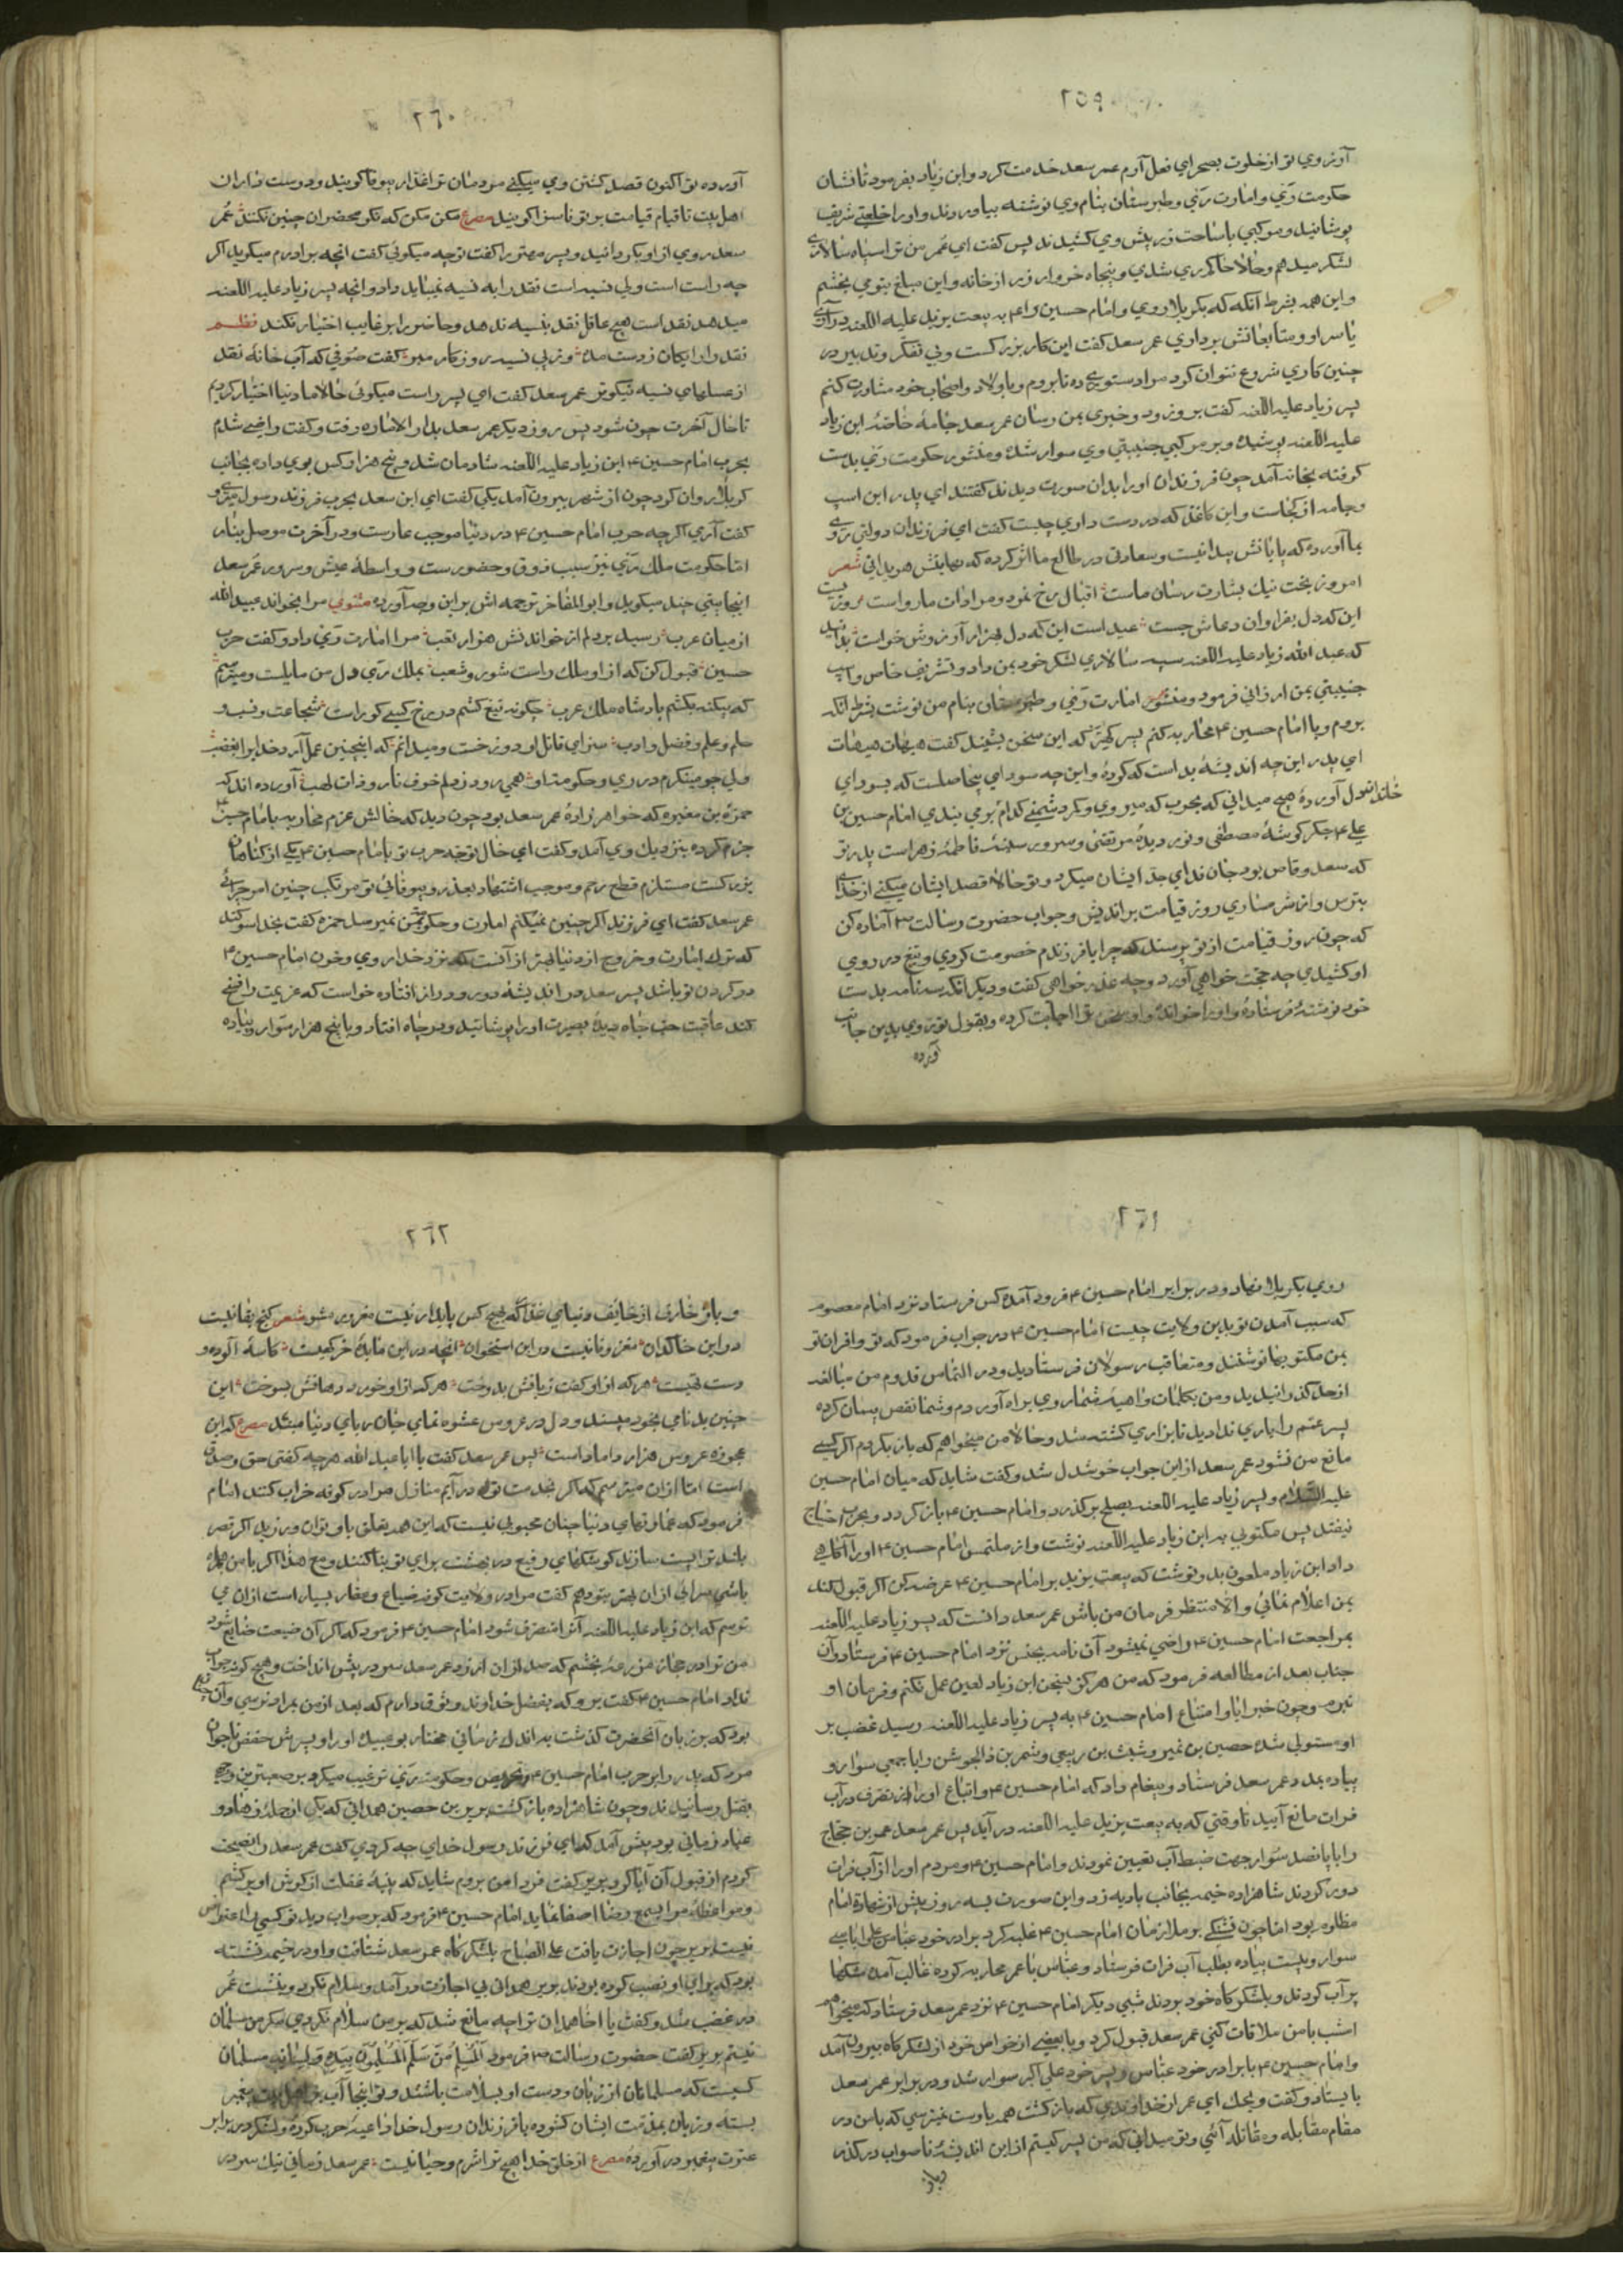 ۲۵۹
آرزوي تو از خلوت بصحراي فعل آرم عمر سعد خدمت كرد و ابن زياد بفرمود تا نشان
حكومت ري و امارت ري و طبرستان بنام وي نوشته بياوردند و اورا خلعتي شريف
پوشانيد و مركبي باساخت زر پيش وي كشيدند پس گفت اي عمر من ترا سپاه سالاري
لشكر ميدهم و حالا حاكم ري شدي و پنجاه خروار زر از خانه و اين مبلغ بتو مي بخشم
و اين همه بشرط آنكه كه بكربلا روي و امام حسين را ع به بيعت يزيد عليه اللعنه درآري
يا سر او و متابعانش برداري عمر سعد گفت اين كار بزرگست و بي تفكر و تدبير در
چنين كاري شروع نتوان كرد مرا دستوري ده تا بروم و با اولاد و اصحاب خود مشاورت كنم
پسر زياد عليه اللعنه گفت برو زود و خبري بمن رسان عمر سعد جامهٔ خاصهٔ ابن زياد
عليه اللعنه پوشيده و بر مركبي جنيبتي وي سوار شده و منشور حكومت ري بدست
گرفته بخانه آمد چون فرزندان اورا بدان صورت ديدند گفتند اي پدر اين اسپ
و جامه از كجاست و اين كاغذ كه در دست داري چيست گفت اي فرزندان دولتي روي
بما آورده كه پايانش پيدا نيست و سعادتي در طالع ما اثر كرده كه نهايتش هويدا ني شعر
امروز بخت نيك بشارت رسان ماست اقبال رخ نمود و مرادات ما رواست روزيست
اين كه دل بفراوان دعاش جست عيد است اين كه دل بهزار آرزوش خواست بدانيد
كه عبد الله زياد عليه اللعنه سپه سالاري لشكر خود بمن داد و تشريف خاص و اسپ
جنيبتي بمن ارزاني فرمود و منشور امارت ري و طبرستان بنام من نوشت بشرط انكه
بروم و با امام حسين ع محاربه كنم پسر كهتر كه اين سخن بشنيد گفت هيهات هيهات
اي پدر اين چه انديشهٔ بد است كه كردهٔ و اين چه سوداي بيحاصلست كه بسوداي
خاندانسول آوردهٔ هيچ ميداني كه بحرب كه ميروي و كمر دشمني كدام بر مي بندي امام حسين بن
علي ع جگر گوشهٔ مصطفي و نور ديدهٔ مرتضي و سرور سينهٔ فاطمهٔ زهراست پدر تو
كه سعد وقاص بود جان فداي جد ايشان ميكرد و تو حالا قصد ايشان ميكني از خداي
بترس و از شرمساري روز قيامت برانديش و جواب حضرت رسالت ص آماده كن
كه چون روز قيامت از تو پرسند كه چرا با فرزندم خصومت كردي و تيغ در روي
او كشيدي چه حجت خواهي آورد و چه عذر خواهي گفت و ديگر انكه سه نامه بدست
خود نوشتهٔ فرستادهٔ و اورا خواندهٔ و او سخن ترا اجابت كرده و بقول تو روي بدين جانب
آورده
۲۶۰
آورده تو اكنون قصد كشتن وي ميكني مردمان ترا غدار و بيوفا گويند و دوست داران
اهل بيت تا قيام قيامت بر تو ناسزا گويند مصرع مكن مكن كه نكو محضران چنين نكنند عمر
سعد روي از او بگردانيد و پسر مهتر را گفت تو چه ميگوئي گفت انچه برادرم ميگويد اگر
چه راست است ولي نسيه است نقد را به نسيه نميبايد داد و انچه پسر زياد عليه اللعنه
ميدهد نقد است هيچ عاقل نقد بنسيه ندهد و حاضر را بر غايب اختيار نكند نظم
نقد را رايگان ز دست مده وز پي نسيه روزگار مبر گفت صوفي كه آب خانه نقد
از عسلهاي نسيه نيكوتر عمر سعد گفت اي پسر راست ميگوئي حالا ما دنيا اختيار كرديم
تا حال آخرت چون شود پس روز ديگر عمر سعد بدار الاماره رفت و گفت راضي شدم
بحرب امام حسين ع ابن زياد عليه اللعنه شادمان شد و پنج هزار كس بوي داده بجانب
كربلا روان كرد چون از شهر بيرون آمد يكي گفت اي ابن سعد بحرب فرزند رسول ميروي
گفت آري اگر چه حرب امام حسين ع در دنيا موجب عارست و در آخرت موصل بنار
اما حكومت ملك ري نيز سبب ذوق و حضورست و واسطهٔ عيش و سرور عمر سعد
اينجا بيتي چند ميگويد و ابو المفاخر ترجمه اش بر اين وجه آورده مثنوي مرا بخواند عبيد الله
از ميان عرب رسيد بر دلم از خواندنش هزار تعب مرا امارت ري داد و گفت حرب
حسين قبول كن كه از او ملك راست شور و شغب بملك ري دل من مايلست و ميترسم
كه بيكنه بكشم پادشاه ملك عرب چگونه تيغ كشم در رخ كسي كو راست شجاعت و نسب و
حلم و علم و فضل و ادب سزاي قاتل او دوزخست و ميدانم كه اينچنين عمل آرد خدا برا بغضب
ولي چو مينگرم در ري و حكومت او همي رود ز دلم خوف نار و ذات لهب آورده اند كه
حمزه بن مغيره كه خواهر زادهٔ عمر سعد بود چون ديد كه خالش عزم محاربه با امام حسين ع
جزم كرده بنزديك وي آمد و گفت اي خال توجه حرب تو با امام حسين ع يكي از گناهان
بزرگست مستلزم قطع رحم و موجب اشتهار بعذر و بيوفائي تو مرتكب چنين امر چرائي
عمر سعد گفت اي فرزند اگر چنين نميكنم امارت و حكومت بمن نميرسد حمزه گفت بخدا سوگند
كه ترك امارت و خروج از دنيا بهتر از آنست كه نزد خدا روي و خون امام حسين ع
در گردن تو باشد پسر سعد در انديشهٔ دور و دراز افتاده خواست كه عزيمت را فسخ
كند عاقبت حب جاه ديدهٔ بصيرت اورا پوشانيد و در چاه افتاد و با پنج هزار سوار و پياده
۲۶۱
روي بكربلا نهاد و در برابر امام حسين ع فرود آمده كس فرستاد نزد امام معصوم
كه سبب آمدن تو بدين ولايت چيست امام حسين ع در جواب فرمود كه تو و اقران تو
بمن مكتوبها نوشتند و متعاقب رسولان فرستاديد و در التماس قدوم من مبالغه
از حد گذرانيديد و من بكلمات واهيهٔ شما روي براه آوردم و شما نقض پيمان كرده
پسر عمم را ياري نداديد تا بزاري كشته شد و حالا من ميخواهم كه باز بگردم اگر كسي
مانع من نشود عمر سعد از اين جواب خوشدل شد و گفت شايد كه ميان امام حسين
عليه السلام و پسر زياد عليه اللعنه بصلح برگذرد و امام حسين ع باز گردد و بحرب احتياج
نيفتد پس مكتوبي به ابن زياد عليه اللعنه نوشت و از ملتمس امام حسين ع اورا آگاهي
داد ابن زياد ملعون بدو نوشت كه بيعت يزيد بر امام حسين ع عرضه كن اگر قبول كند
بمن اعلام نمائي و الا منتظر فرمان من باش عمر سعد دانست كه پسر زياد عليه اللعنه
بمراجعت امام حسين ع راضي نميشود آن نامه بجنس نزد امام حسين ع فرستاد و آن
جناب بعد از مطالعه فرمود كه من هرگز بسخن ابن زياد لعين عمل نكنم و فرمان او
نبرم و چون خبر ابا و امتناع امام حسين ع به پسر زياد عليه اللعنه رسيد غضب بر
او مستولي شده حصين بن نمير و شبث بن ربيعي و شمر بن ذالجوشن را با جمعي سوار و
پياده بمدد عمر سعد فرستاد و پيغام داد كه امام حسين ع و اتباع اورا از تصرف در آب
فرات مانع آييد تا وقتي كه به بيعت يزيد عليه اللعنه در آيد پس عمر سعد عمرو بن حجاج
را با پانصد سوار جهت ضبط آب تعيين نمودند و امام حسين ع و مردم اورا از آب فرات
دور كردند شاهزاده خيمه بجانب باديه زد و اين صورت بسه روز پيش از شهادة امام
مظلوم بود اما چون تشنگي بر ملازمان امام حسين ع غلبه كرد برادر خود عباس علي را با سي
سوار و بيست پياده بطلب آب فرات فرستاد و عباس با عمر محاربه كرده غالب آمده مشكها
پر آب كردند و بلشكرگاه خود بردند شبي ديگر امام حسين ع نزد عمر سعد فرستاد كه ميخواهم
امشب با من ملاقات كني عمر سعد قبول كرد و با بعضي از خواص خود از لشكرگاه بيرون آمد
و امام حسين ع با برادر خود عباس و پسر خود علي اكبر سوار شد و در برابر عمر سعد
بايستاد و گفت ويحك اي عمر از خداوندي كه بازگشت همه باوست نميترسي كه با من در
مقام مقابله و مقاتله آئي و تو ميداني كه من پسر كيستم از اين انديشهٔ ناصواب درگذر
و باز
۲۶۲
و بر خارف از خائف دنياي غدار كه بهيچ كس پايدار نيست مغرور مشو شعر گنج بقا نيست
در اين خاكدان مغز وفا نيست در اين استخوان انچه در اين مايدهٔ خرگهيست كاسهٔ آلوده و
دست تهيست هر كه از او گفت زبانش بدوخت هر كه از او خورد دهانش بسوخت اين
چنين بدنامي بخود مپسند و دل در عروس عشوه نماي جان رباي دنيا مبند مصرع كه اين
عجوزه عروس هزار داماد است پس عمر سعد گفت يا ابا عبد الله هر چه گفتي حق و صدق
است اما از ان ميترسم كه اگر بخدمت تو در آيم منازل مرا در كوفه خراب كنند امام
فرمود كه عمارتهاي دنيا چنان محبوبي نيست كه اين همه تعلق با و توان ورزيد اگر قصر
بلند ترا پست سازند كوشكهاي رفيع در بهشت براي تو بنا كنند و مع هذا اگر با من همراه
باشي سرائي از ان بهتر بتو دهم گفت مرا در ولايت كوفه ضياع و عقار بسيار است از ان مي
ترسم كه ابن زياد عليه اللعنه آنرا متصرف شود امام حسين ع فرمود كه اگر آن ضيعت ضايع شود
من ترا در حجاز مزرعهٔ بخشم كه صد از ان ارزد عمر سعد سر در پيش انداخت و هيچ گونه جواب
نداد امام حسين ع گفت برو كه بفضل خداوند وثوق دارم كه بعد از من بمراد نرسي و آن چنان
بود كه بر زبان آنحضرت گذشت به اندك زماني مختار بو عبيده اورا و پسرش حفص ناجوان
مرد كه پدر را بر حرب امام حسين ع تحريص و حكومت ري ترغيب ميكرد بر صعبترين وجه
بقتل رسانيدند و چون شاهزاده بازگشت برير بن حصين همداني كه يكي از جمله زهاد و
عباد زماني بود پيش آمد كه اي فرزند رسول خداي چه كردي گفت عمر سعد را نصيحت
كردم از قبول آن ابا كرد برير گفت فردا من بروم شايد كه پنبهٔ غفلت از گوش او بر كشم
و مواعظ مرا بسمع رضا اصغا نمايد امام حسين ع فرمود كه بر صواب ديد تو كسي را اعتراض
نيست برير چون اجازت يافت علي الصباح بلشكر گاه عمر سعد شتافت و او در خيمه نشسته
بود كه براي او نصب كرده بودند برير همداني بي اجازت در آمد و سلام نكرد و بنشست عمر
در غضب شد و گفت يا اخا همدان ترا چه مانع شد كه بر من سلام نكردي مگر من مسلمان
نيستم برير گفت حضرت رسالت ص فرمود اَلْمُسْلِمُ مَنْ سَلِمَ الْمُسْلِمُونَ بِيَدِهِ وَ لِسَانِهِ مسلمان
كسيست كه مسلمانان از زبان و دست او بسلامت باشند و تو اينجا آب بر اهل بيت پيغمبر
بسته و زبان بمذمت ايشان گشوده با فرزندان رسول خدا داعيهٔ حرب كرده و لشكر در برابر
عترت پيغمبر در آوردهٔ مصرع از خلق خدا هيچ ترا شرم و حيا نيست عمر سعد زماني نيك سر در